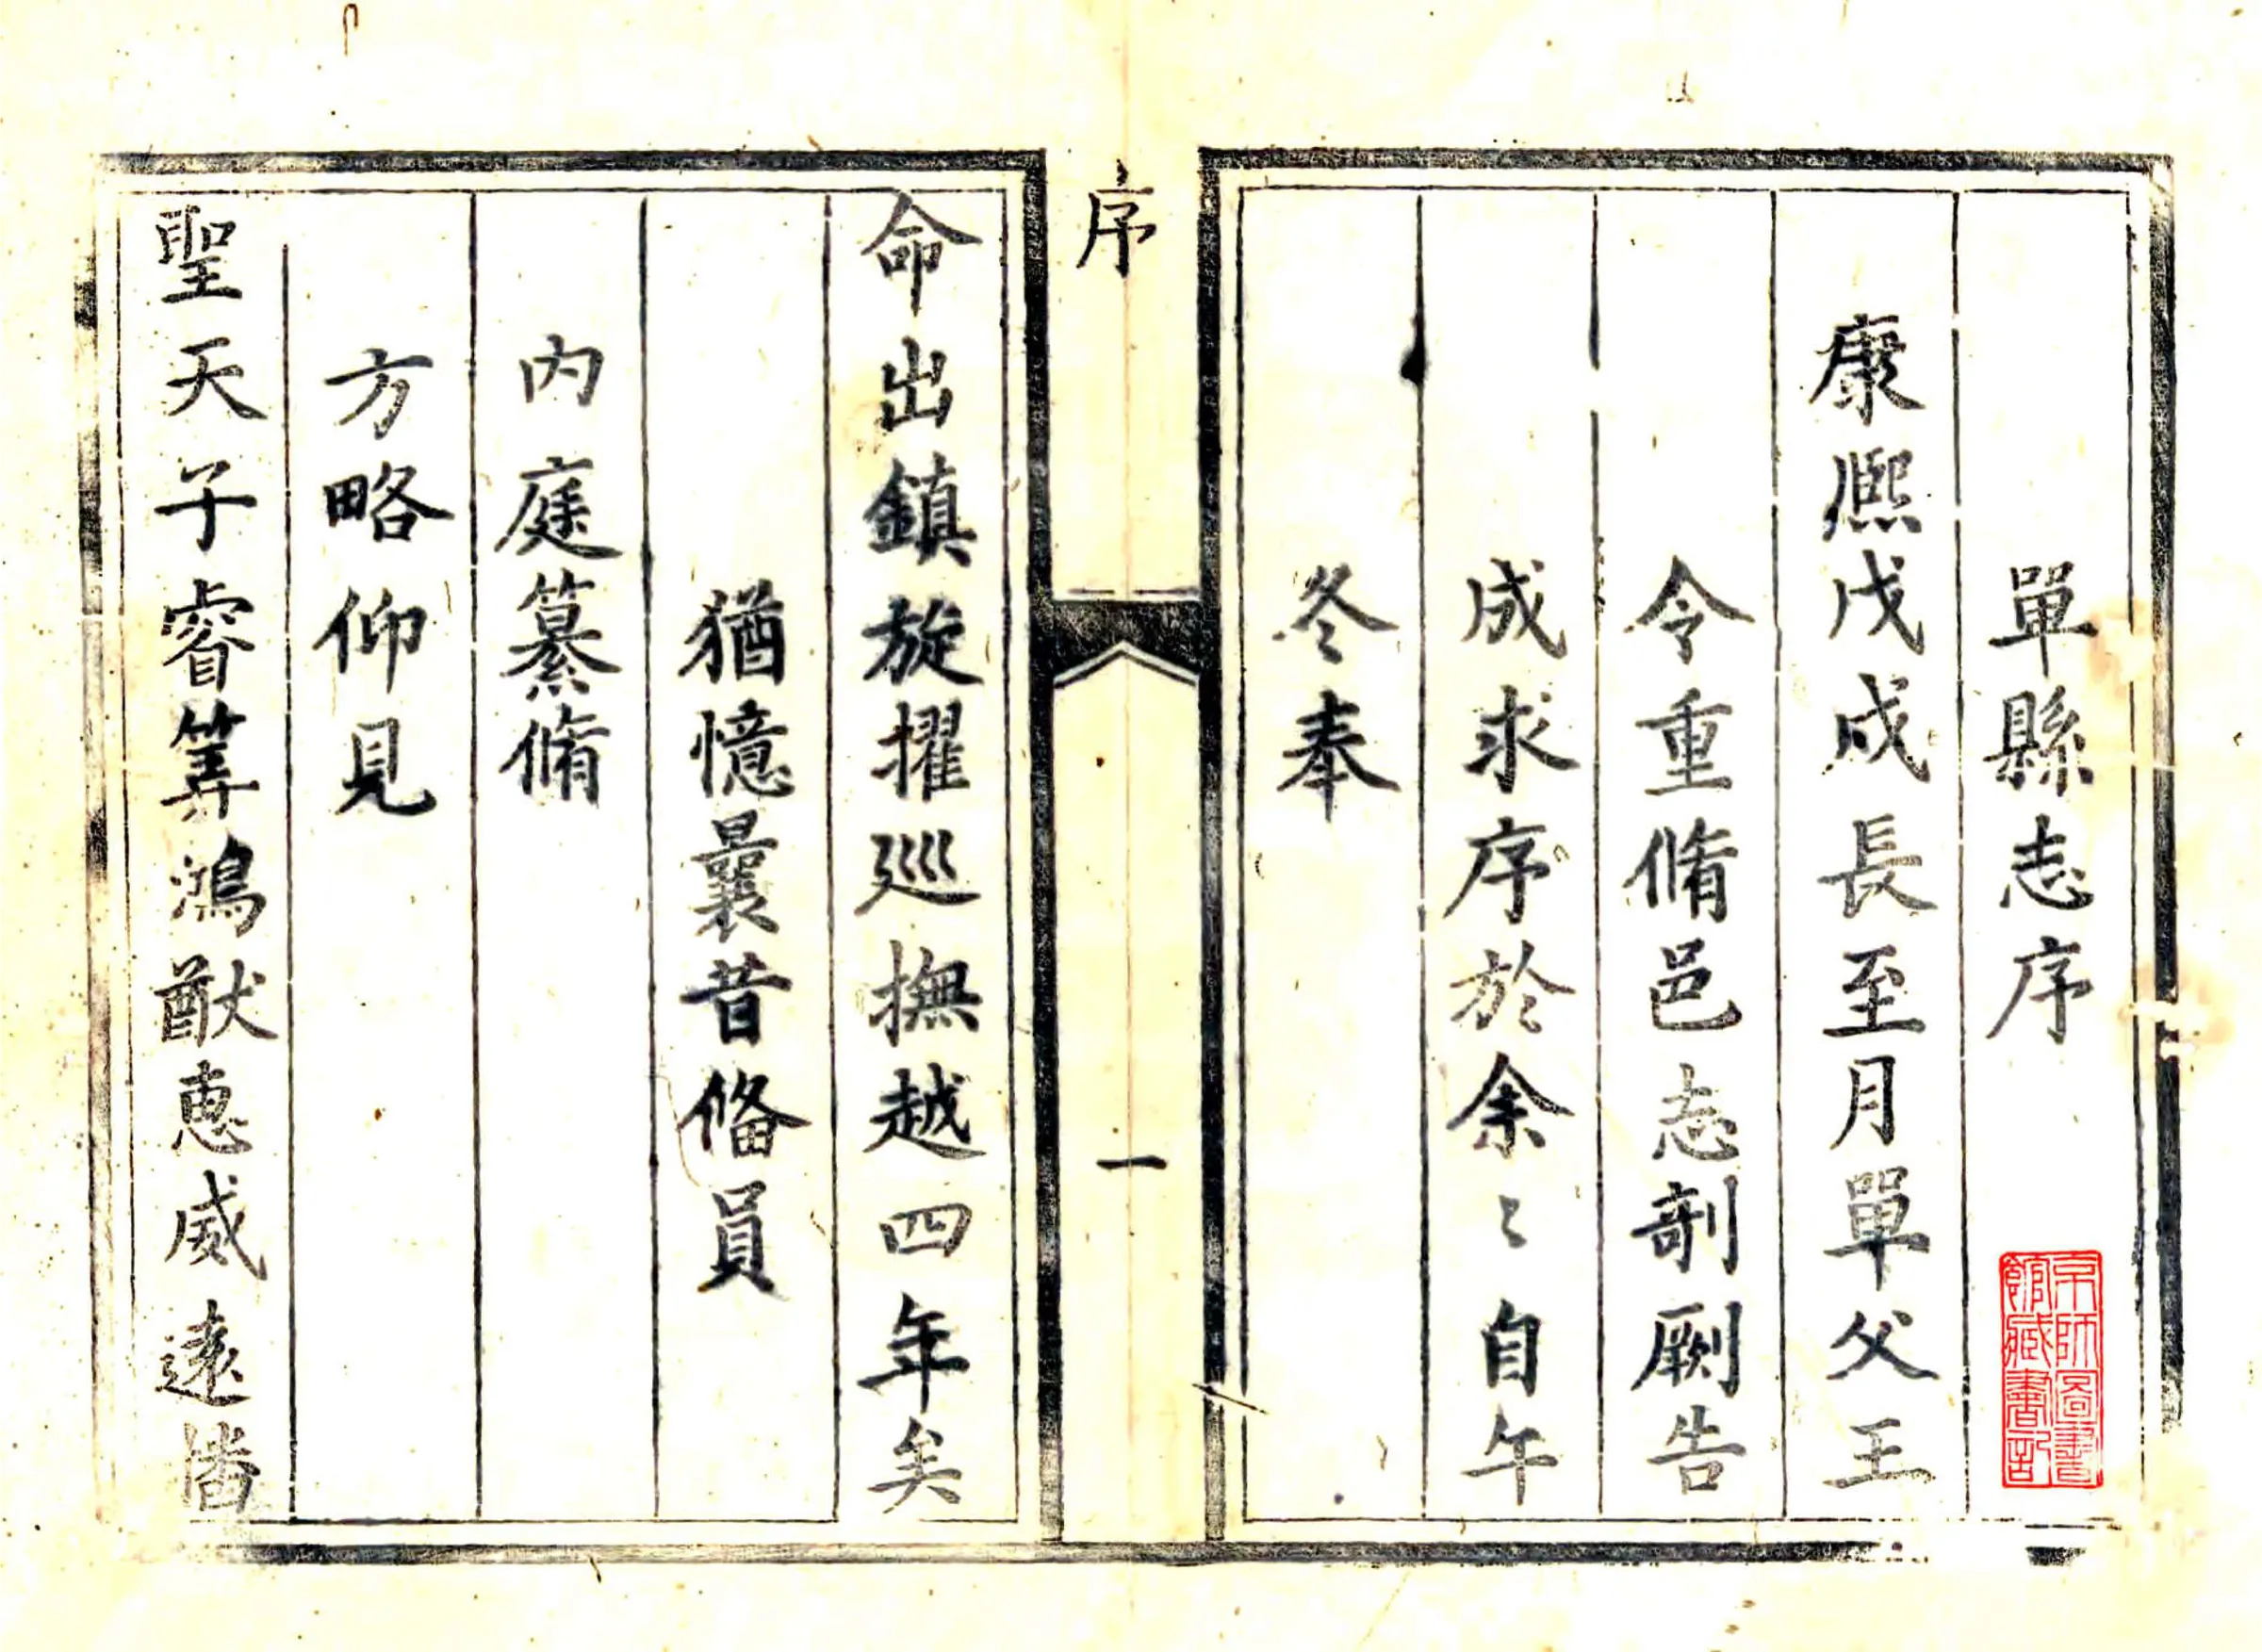 單縣志序
京師圖書館藏書記
康熙戊戌長至月單父王
令重脩邑志剞劂告
成求序於余〻自午
冬奉
序
一
命出鎮旋擢巡撫越四年矣
猶憶曩昔俻員
內庭纂脩
方略仰見
聖天子睿筭鴻猷恵威遠